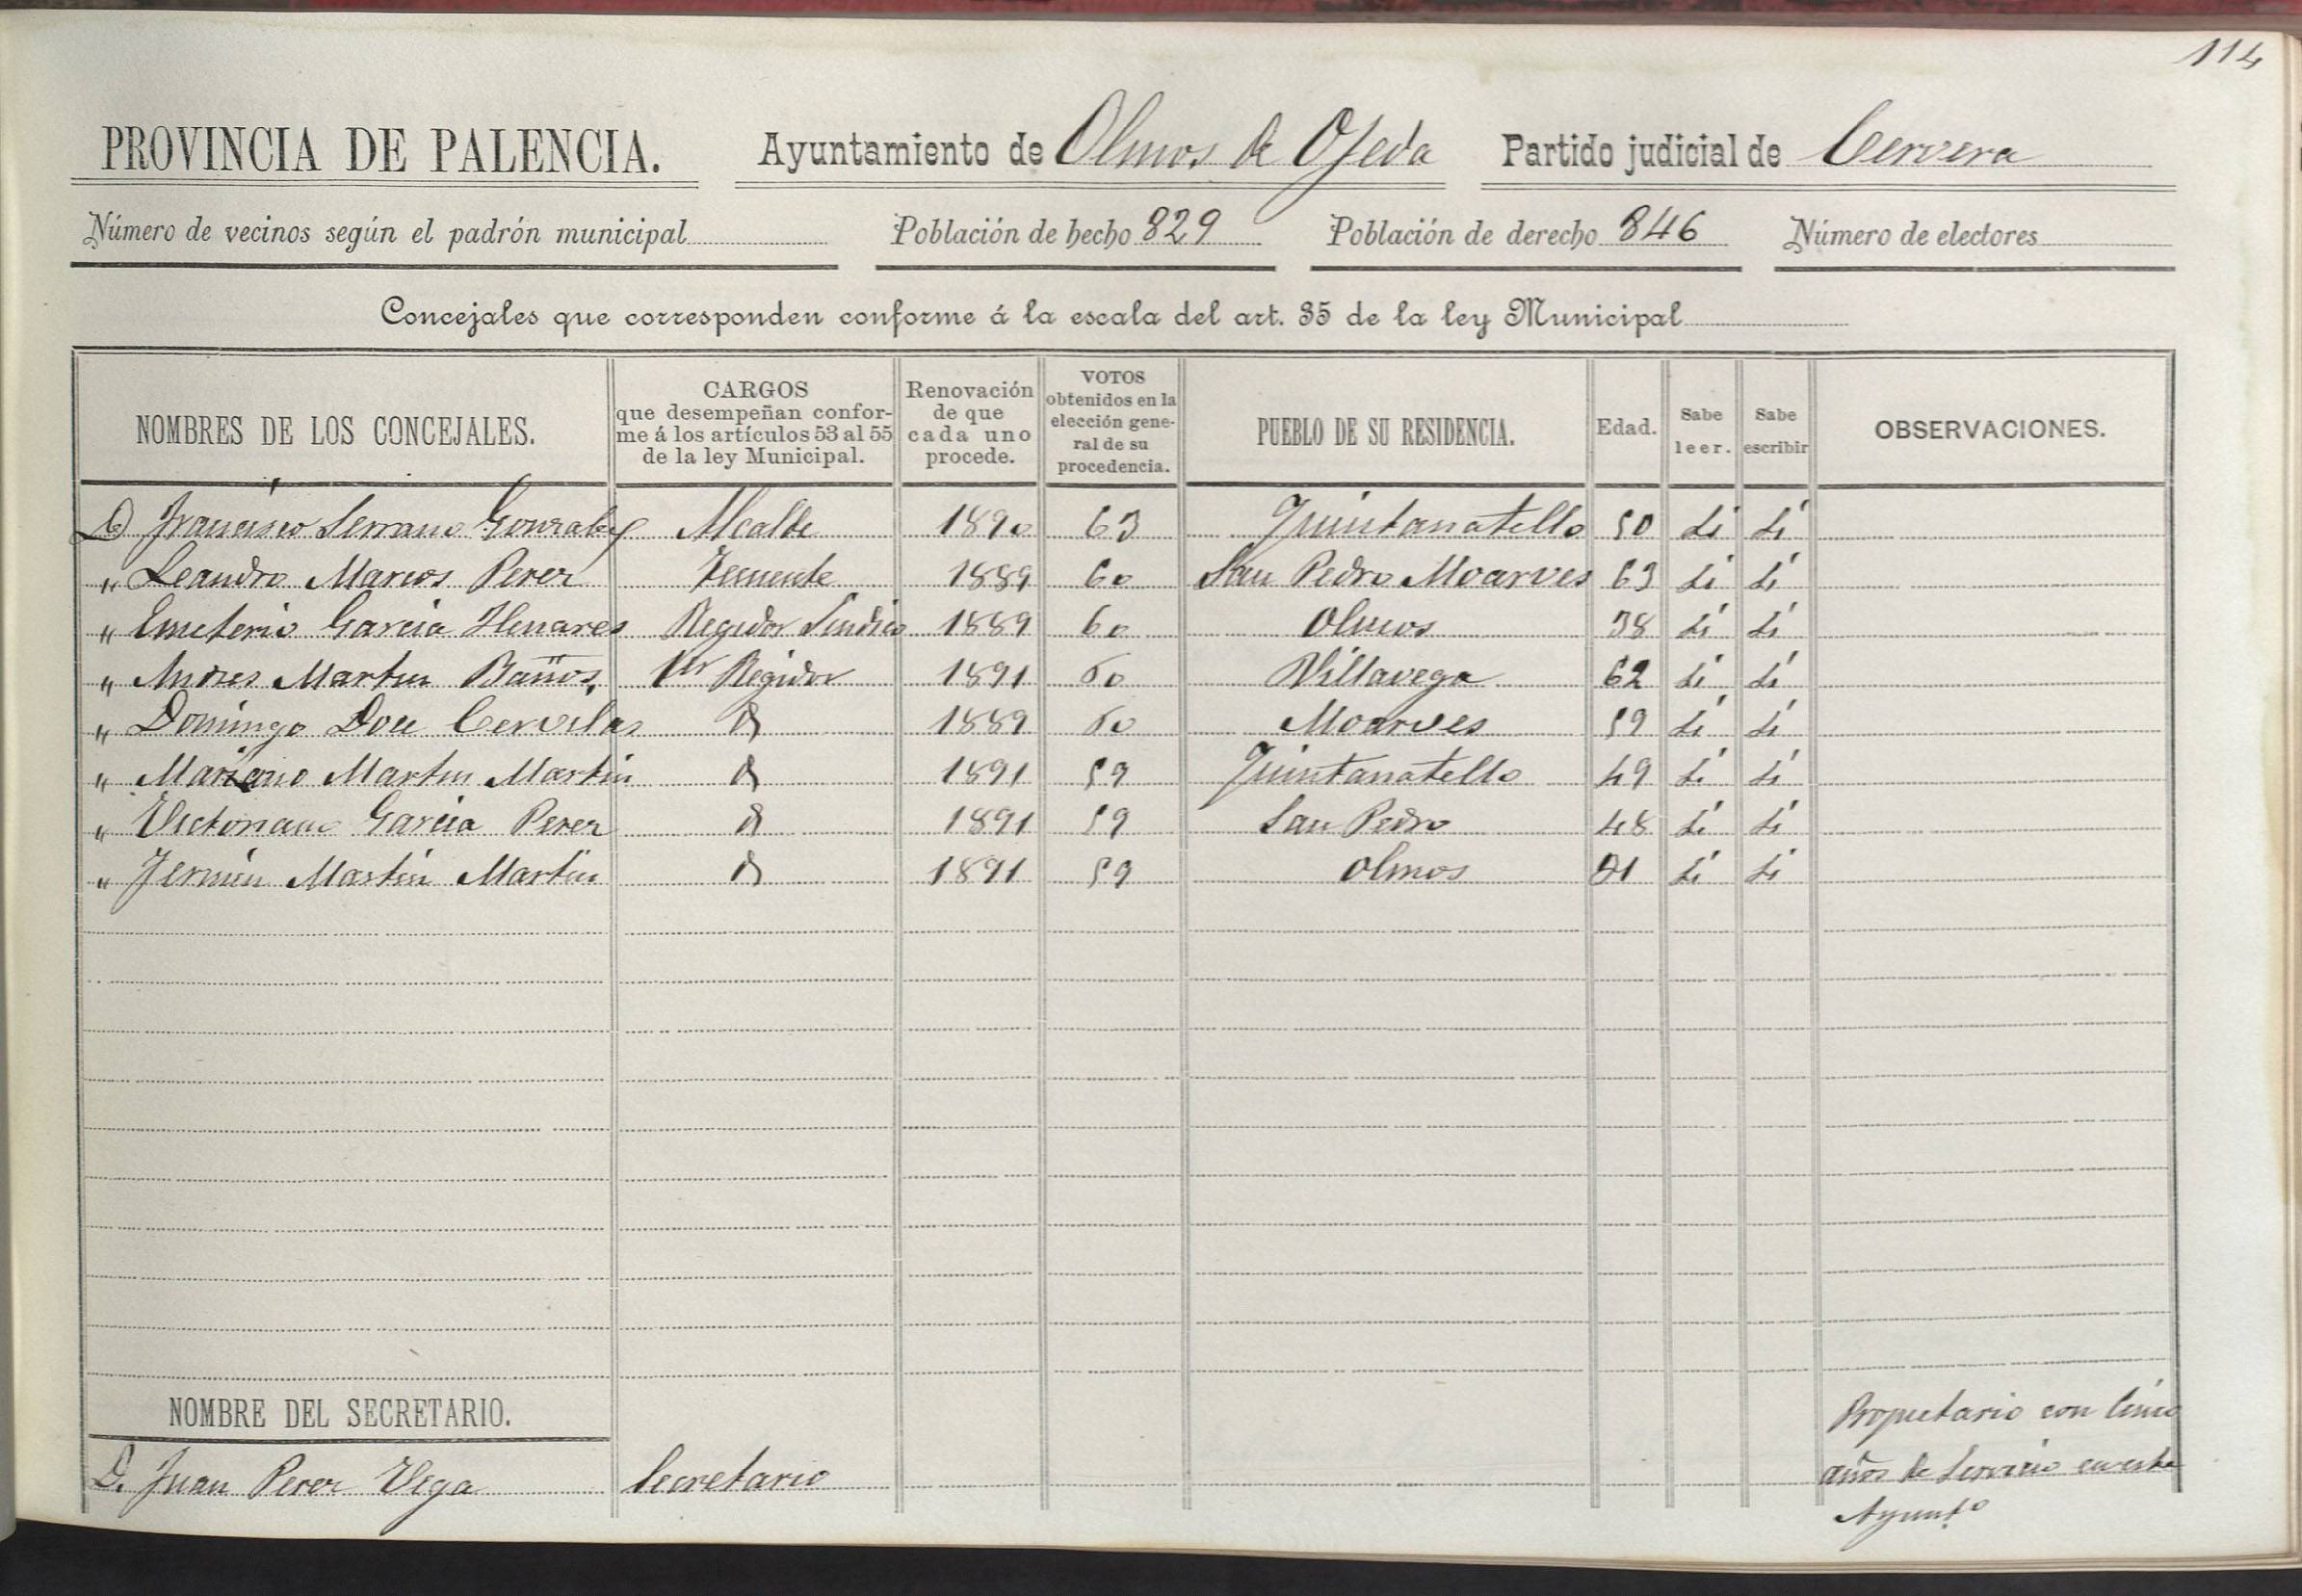 114
PROVINCIA DE PALENCIA. Ayuntamiento de Olmos de Ojeda Partido judicial de Cervera
Número de vecinos según el padrón municipal Población de hecho 829 Población de derecho 846 Número de electores
Concejales que corresponden conforme á la escala del art. 35 de la ley Municipal
NOMBRES DE LOS CONCEJALES. CARGOS que desempeñan conforme á los artículos 53 al 55 de la ley Municipal. Renovación de que cada uno procede. VOTOS obtenidos en la elección general de su procedencia. PUEBLO DE SU RESIDENCIA. Edad. Sabe leer. Sabe escribir OBSERVACIONES.
D Francisco Serrano Gonzalez Alcalde 1890 63 Quintanatello 50 Si Si
" Leandro Marcos Perez Teniente 1889 60 San Pedro Moarves 63 Si Si
" Emeterio Garcia Henares Regidor Sindico 1889 60 Olmos 38 Si Si
" Andres Martin Baños, 1er Regidor 1891 60 Villavega 62 Si Si
" Domingo 1889 60 Moarves 59 Si Si
" Mariano Martin Martin 1891 59 Quintanatello 49 Si Si
" Victoriano Garcia Perez 1891 59 San Pedro 48 Si Si
" Fermin Martin Martin 1891 59 Olmos Si Si
NOMBRE DEL SECRETARIO.
D. Juan Perez Vega Secretario Propietario con Cinco
años de Servicio en este
Ayunto